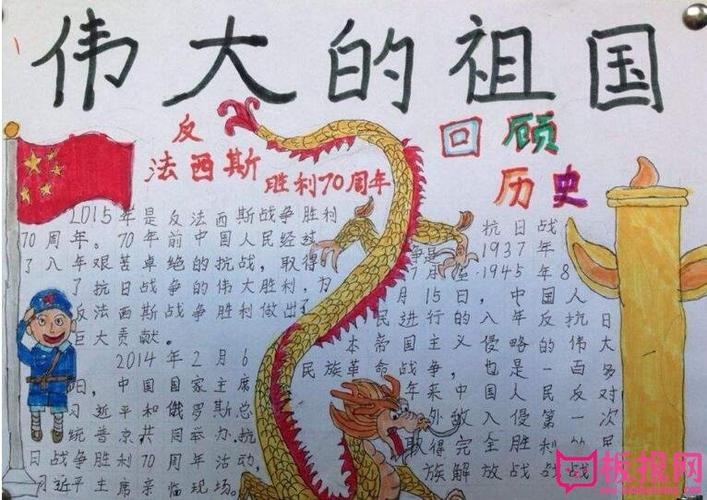 伟大的祖国
反
法西斯 胜利70周年
2015年是反法西斯战争胜利
70周年。70年前中国人民经续
了八年艰苦卓绝的抗战,取得
了抗日战争的伟大胜利,为
反法西斯战争胜利做出了
巨大贡献。
2014年2月6
日,中国国家主席
习近平和俄罗斯总
统普京共同举办抗
日战争胜利70周年活动,
习近平主席亲临现场。
回顾
历史
抗日战
争是1937年
7月至1945年8
月15日,中国人
民进行的八年反抗日
本帝国主义侵略的伟大
民族革命战争,也是一百多
年来中国人民反对
外敌入侵第一次
取得完全胜利的民
族解放战战战战
板报网